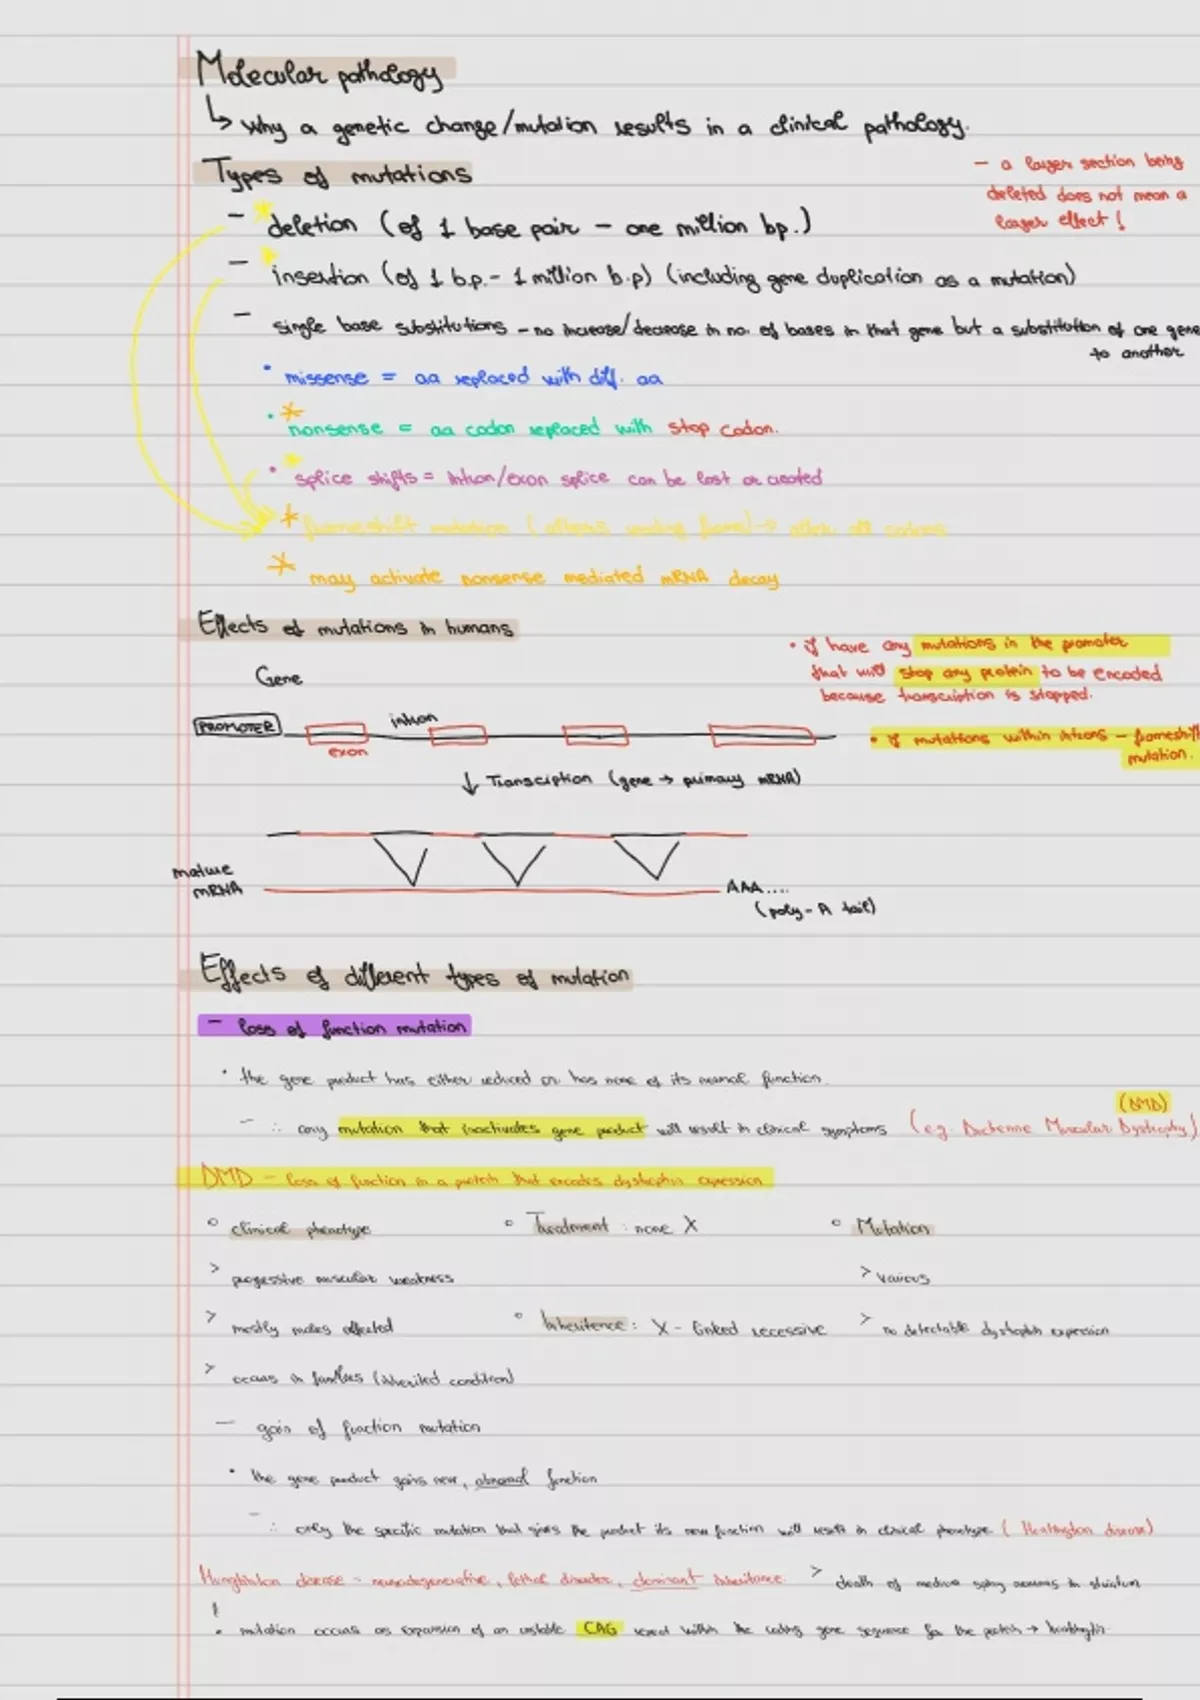 Molecular pathology
↳ why a genetic change/mutation results in a clinical pathology.
Types of mutations
- a larger section being
deleted does not mean a
larger effect!
- * deletion (of 1 base pair - one million bp.)
- * insertion (of 1 b.p. - 1 million b.p) (including gene duplication as a mutation)
- single base substitutions - no increase/decrease in no. of bases in that gene but a substitution of one gene
to another
• missense = aa replaced with diff. aa
• * nonsense = aa codon replaced with stop codon.
• * splice shifts = intron/exon splice can be lost or created
* frameshift mutation (alters reading frame) → alter all codons
* may activate nonsense mediated mRNA decay
Effects of mutations in humans
• if have any mutations in the promoter
that will stop any protein to be encoded
because transcription is stopped.
Gene
PROMOTER
intron
exon
• if mutations within introns - frameshift
mutation.
↓ Transcription (gene → primary mRNA)
mature
mRNA
AAA....
(poly-A tail)
Effects of different types of mutation
- loss of function mutation
• the gene product has either reduced or has none of its normal function.
- ∴ any mutation that inactivates gene product will result in clinical symptoms (e.g. Duchenne Muscular Dystrophy)
(DMD)
DMD - loss of function in a protein that encodes dystrophin expression
° clinical phenotype
° Treatment : none X
° Mutation
> progessive muscular weakness
> various
> mostly males affected
° Inheritence : X-linked recessive
> no detectable dystrophin expression
> occurs in families (inherited condition)
- gain of function mutation
• the gene product gains new, abnormal function
- ∴ only the specific mutation that gives the product its new function will result in clinical phenotype (Huntington disease)
Hungtinton disease - neurodegenerative, lethal disorder, dominant inheritance. > death of medium spiny neurons in striatum
• mutation occurs as expansion of an unstable CAG repeat within the coding gene sequence for the protein → huntingtin